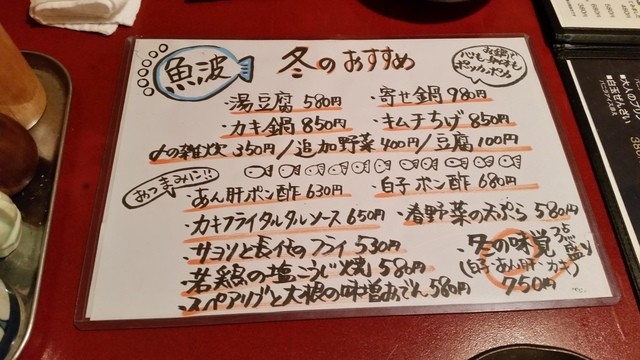 魚波
冬のおすすめ
お鍋で
心も身体も
ポッカポカ
・湯豆腐 580円
・寄せ鍋 980円
・カキ鍋 850円
・キムチちげ 850円
〆の雑炊 350円/追加野菜 400円/豆腐 100円
おつまみに!!
・あん肝ポン酢 630円
・白子ポン酢 680円
・カキフライタルタルソース 650円
・春野菜の天ぷら 580円
・サヨリと長イモのフライ 530円
・冬の味覚 3点盛り
(白子・あん肝・カキ)
750円
・若鶏の塩こうじ焼 580円
・スペアリブと大根の味噌おでん 580円
■白玉ぜんざい